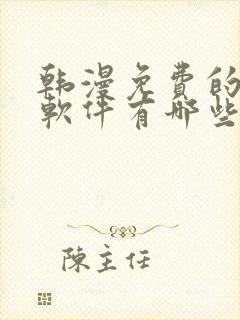 韩漫免费的
軟件有哪些
陳主任